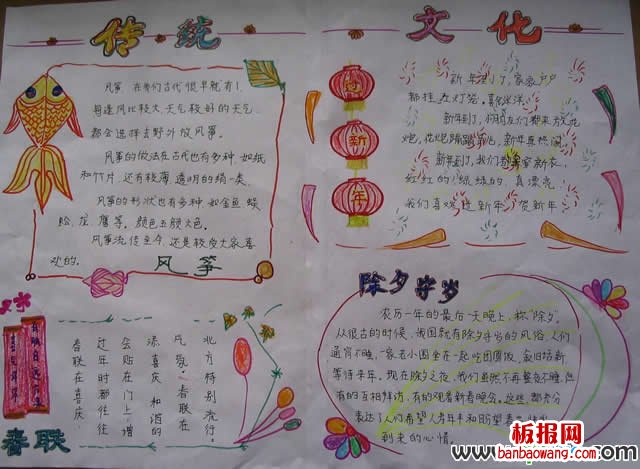 传统
文化
风筝,在我们古代很早就有!
每逢风比较大,天气较好的天气,
都会选择去野外放风筝。
风筝的做法在古代也有多种,如纸
和竹片,还有较薄,透明的绢一类.
风筝的形状也有多种,如金鱼蜈
蚣,龙,鹰等,颜色五颜六色。
风筝流传至今,还是较受大家喜
欢的。
风筝
新年到了,家家户户
都挂在灯笼,喜气洋洋。
新年到了,
炮,
新年到了,我们
红红的,绿绿的,真漂亮。
我们喜欢过新年,贺新年
新
年
除夕守岁
农历一年的最后一天晚上,称"除夕",
从很古的时候,我国就有除夕守岁的风俗,人们
通宵不睡,一家老小围坐在一起吃团圆饭,叙旧话新,
等待来年。现在除夕之夜,我们虽然不再整夜不睡,但
有的互相拜访,有的观看新春晚会。这些,都充分
表达了人们希望人寿年丰和盼望
到来的心情。
北方特别流行。
气氛。春联在
添喜庆和谐的
会贴在门上,增
过年时都往往
春联在喜庆
春联
板报网
banbaowang.com